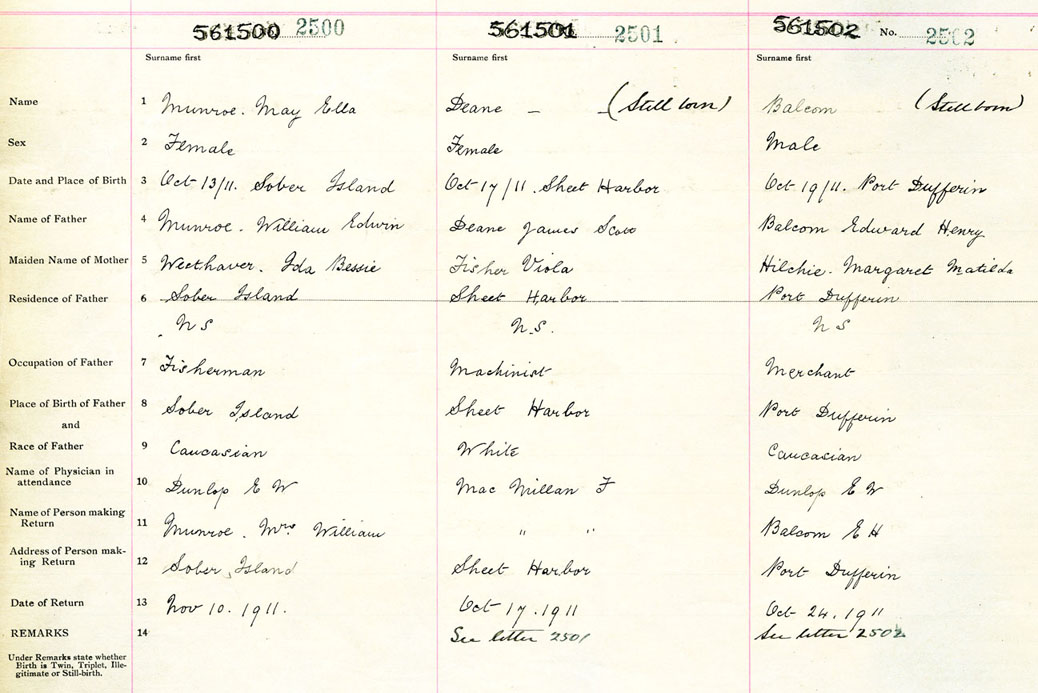 561500 2500 561501 2501 561502 No. 2502
Surname first Surname first Surname first
Name 1 Munroe. May Ella Deane — — (Still born) Balcom (Still born)
Sex 2 Female Female Male
Date and Place of Birth 3 Oct 13/11. Sober Island Oct 17/11. Sheet Harbor Oct 19/11. Port Dufferin
Name of Father 4 Munroe. William Edwin Deane James Scott Balcom Edward Henry
Maiden Name of Mother 5 Weethaver. Ida Bessie Fisher Viola Hilchie. Margaret Matilda
Residence of Father 6 Sober Island Sheet Harbor Port Dufferin
N S N.S. N S
Occupation of Father 7 Fisherman Machinist Merchant
Place of Birth of Father 8 Sober Island Sheet Harbor Port Dufferin
and
Race of Father 9 Caucasian White Caucasian
Name of Physician in
attendance 10 Dunlop E W Mac Millan F Dunlop E W
Name of Person making
Return 11 Munroe. Mrs William " " Balcom E H
Address of Person mak-
ing Return 12 Sober Island Sheet Harbor Port Dufferin
Date of Return 13 Nov 10. 1911. Oct 17. 1911 Oct 24. 1911
REMARKS 14 See letter 2501 See letter 2502
Under Remarks state whether
Birth is Twin, Triplet, Ille-
gitimate or Still-birth.